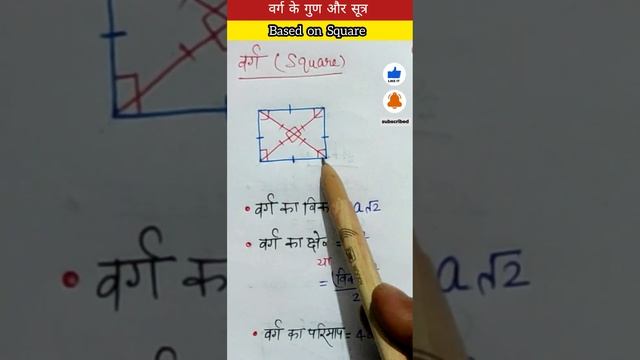 वर्ग के गुण और सूत्र
Based on Square
वर्ग (Square)
LIKE IT
subscribed
• वर्ग का a√2
• वर्ग का =
या
=
2
• वर्ग का परिमाप = 4
• वर्ग क
a√2